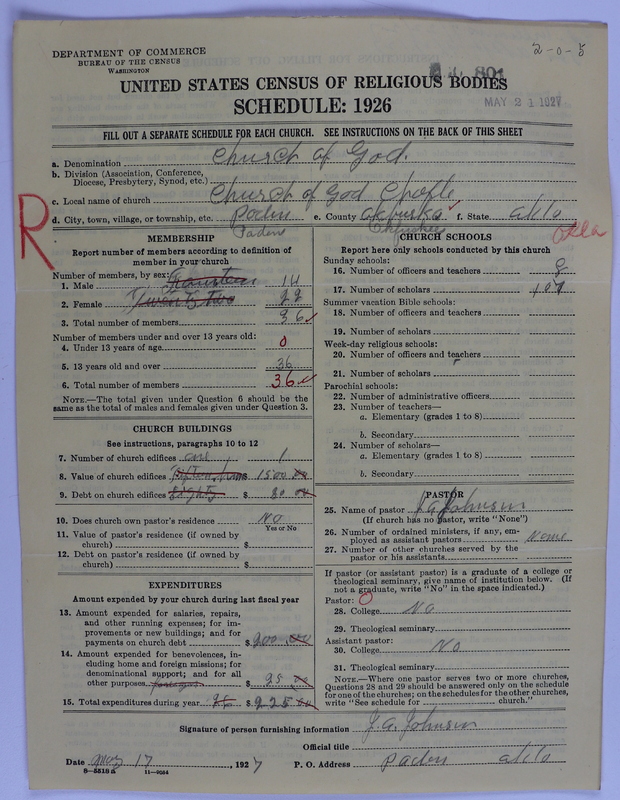 2-0-5
DEPARTMENT OF COMMERCE
BUREAU OF THE CENSUS
WASHINGTON
801
UNITED STATES CENSUS OF RELIGIOUS BODIES
SCHEDULE: 1926
MAY 21 1927
FILL OUT A SEPARATE SCHEDULE FOR EACH CHURCH. SEE INSTRUCTIONS ON THE BACK OF THIS SHEET
a. Denomination Church of God.
b. Division (Association, Conference,
Diocese, Presbytery, Synod, etc.)
c. Local name of church Church of God
d. City, town, village, or township, etc. Paden e. County f. State
Paden Okla
R
MEMBERSHIP
Report number of members according to definition of
member in your church
Number of members, by sex:
1. Male Fourteen 14
2. Female Twenty two 22
3. Total number of members 36
Number of members under and over 13 years old:
4. Under 13 years of age 0
5. 13 years old and over 36
6. Total number of members 36
NOTE.—The total given under Question 6 should be
the same as the total of males and females given under Question 3.
CHURCH BUILDINGS
See instructions, paragraphs 10 to 12
7. Number of church edifices one 1
8. Value of church edifices $ 1500
9. Debt on church edifices Eighty $ 80
10. Does church own pastor's residence NO
Yes or No
11. Value of pastor's residence (if owned by
church) $
12. Debt on pastor's residence (if owned by
church) $
EXPENDITURES
Amount expended by your church during last fiscal year
13. Amount expended for salaries, repairs,
and other running expenses; for im-
provements or new buildings; and for
payments on church debt $ 200
14. Amount expended for benevolences, in-
cluding home and foreign missions; for
denominational support; and for all
other purposes $ 25
15. Total expenditures during year $ 225
CHURCH SCHOOLS
Report here only schools conducted by this church
Sunday schools:
16. Number of officers and teachers 8
17. Number of scholars
Summer vacation Bible schools:
18. Number of officers and teachers
19. Number of scholars
Week-day religious schools:
20. Number of officers and teachers
21. Number of scholars
Parochial schools:
22. Number of administrative officers
23. Number of teachers—
a. Elementary (grades 1 to 8)
b. Secondary
24. Number of scholars—
a. Elementary (grades 1 to 8)
b. Secondary
PASTOR
25. Name of pastor J.A. Johnson
(If church has no pastor, write "None")
26. Number of ordained ministers, if any, em-
ployed as assistant pastors None
27. Number of other churches served by the
pastor or his assistants
If pastor (or assistant pastor) is a graduate of a college or
theological seminary, give name of institution below. (If
not a graduate, write "No" in the space indicated.)
Pastor: 0
28. College No
29. Theological seminary
Assistant pastor:
30. College No
31. Theological seminary
NOTE.—Where one pastor serves two or more churches,
Questions 28 and 29 should be answered only on the schedule
for one of the churches; on the schedules for the other churches,
write "See schedule for church."
Signature of person furnishing information J.A. Johnson
Official title
Date May 17, 1927 P. O. Address Paden
8-5518a 11-9034